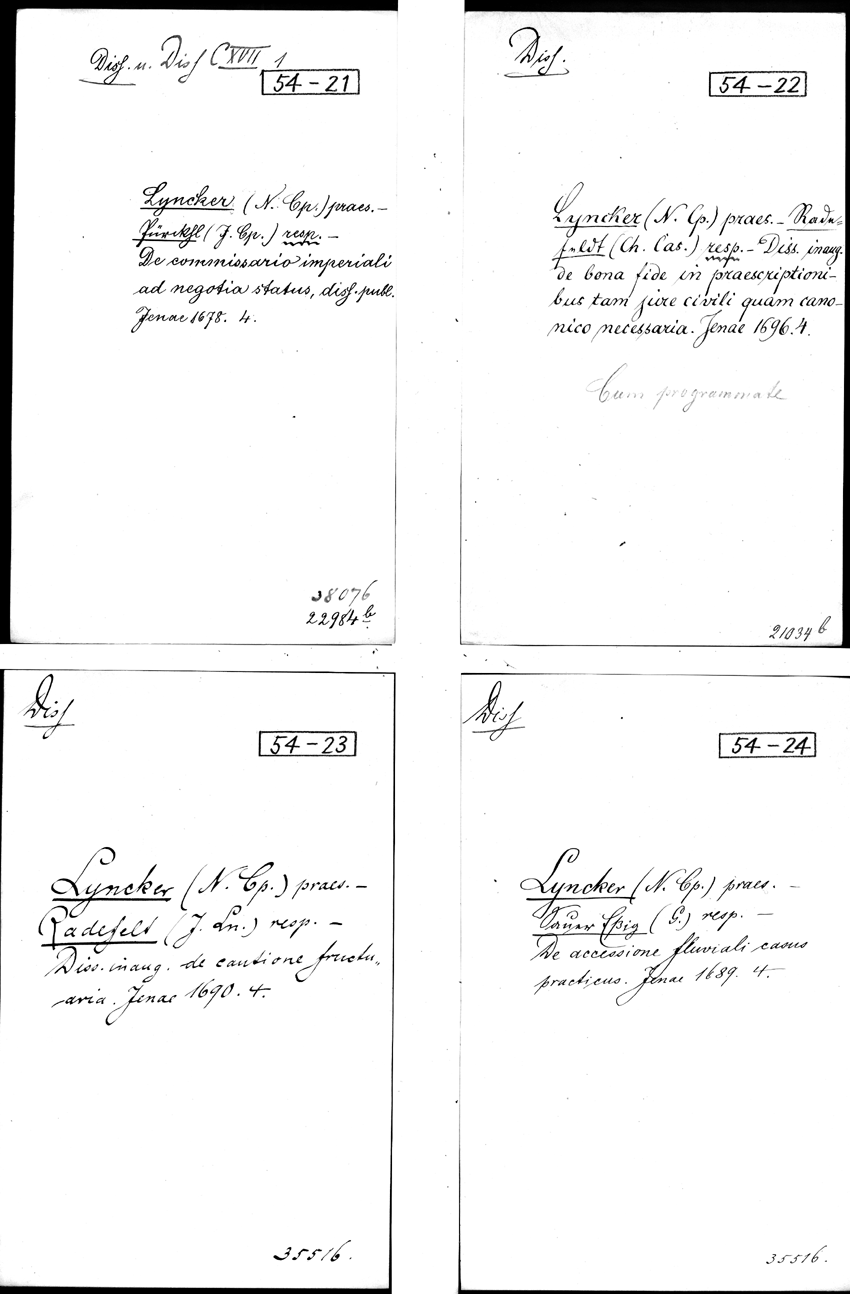 Diss. u. Diss C XVII 1
54-21
Lyncker (N. Cp.) praes. –
Pürckhl (J. Cp.) resp. –
De commissario imperiali
ad negotia status, diss. publ.
Jenae 1678. 4.
38076
22984 b
Diss.
54-22
Lyncker (N. Cp.) praes. – Rade-
feldt (Ch. Cas.) resp. – Diss. inaug.
de bona fide in praescriptioni-
bus tam jure civili quam cano-
nico necessaria. Jenae 1696. 4.
Cum programmate
21034 b
Diss
54-23
Lyncker (N. Cp.) praes. –
Radefelt (J. Ln.) resp. –
Diss. inaug. de cautione fructu-
aria. Jenae 1690. 4.
35516.
Diss
54-24
Lyncker (N. Cp.) praes. –
Sauer Eßig (G.) resp. –
De accessione fluviali casus
practicus. Jenae 1689. 4.
35516.